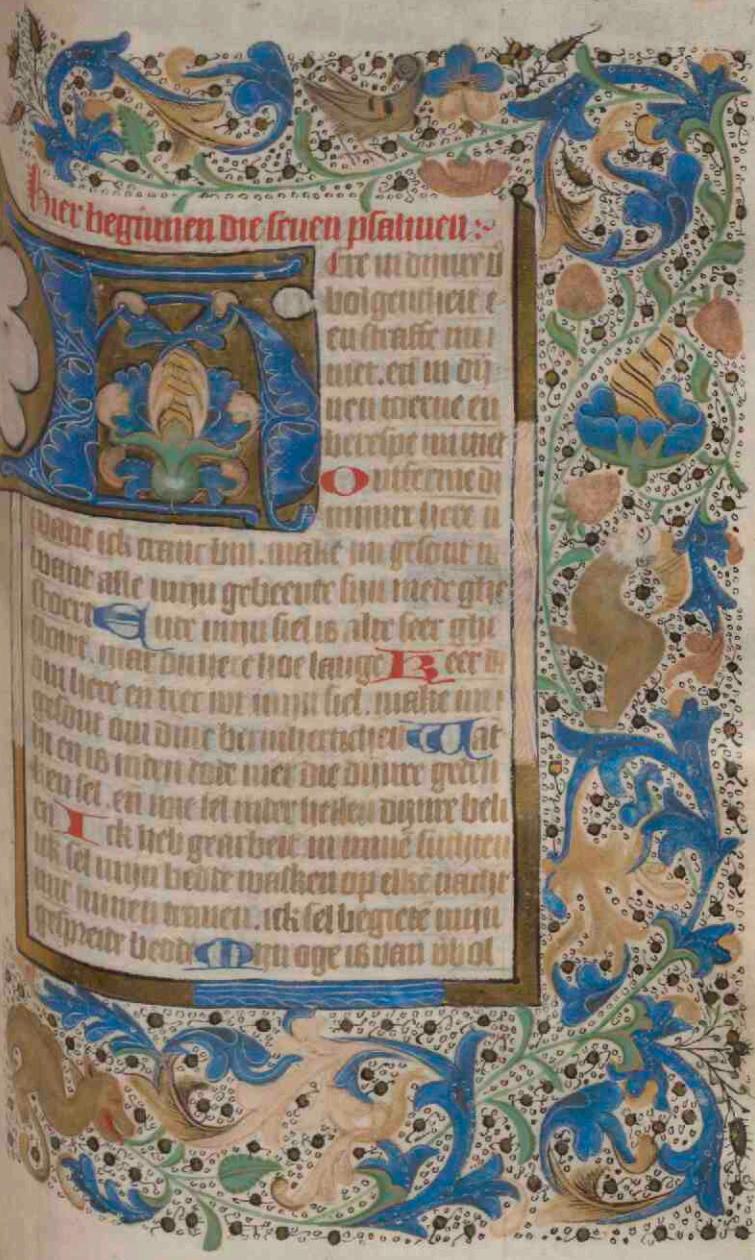 Hier beginnen die seuen psalmen :~
Here in dijnre v̄
volgentheit e
en straffe mi
niet. en̄ in dij
nen toerne en
berespe mi niet
Ontferme di
mijnre here
want ick cranc bin. make mi gesont
want alle mijn gebeente sijn mede ghe
stoert Ende mijn siel is alte seer ghe
stoert. mar du here hoe lange Keer di
om here en̄ mijn siel. make mi
gesont om dine bermherticheit Wat
hi en is inden doit niet die dijnre geden
ken sel. en̄ wie sel inder hellen dijnre beli
en Ick heb gearbeit in minē suchten
ick sel mijn bedde wasken op elke nachte
mit minen tranen. ick sel begietē mijn
gespreide bedde Mijn oge is van v̄bol